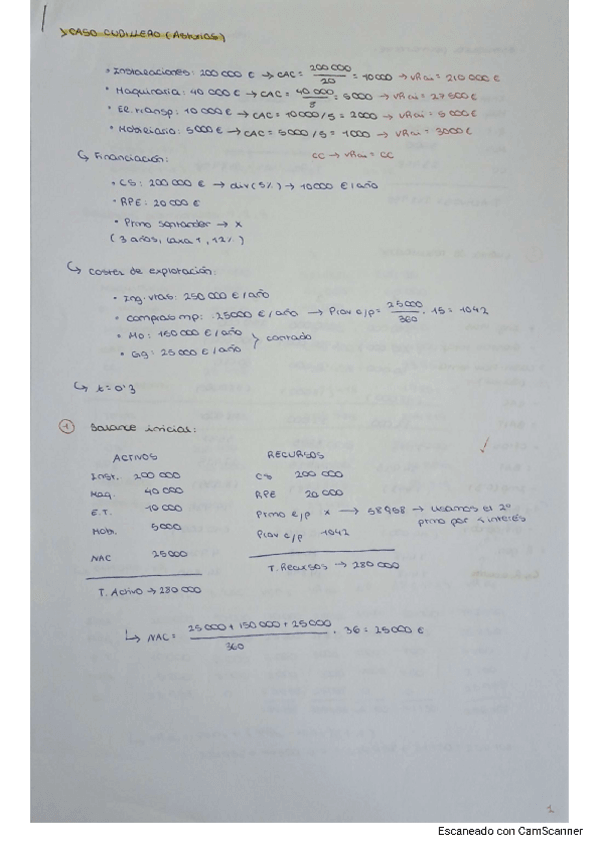 > CASO CUDILLERO (Asturias)
• Instalaciones: 200 000 € → CAC = 200 000 / 20 = 10000 → VRcu = 210 000 €
• Maquinaria: 40 000 € → CAC = 40 000 / 8 = 5000 → VRcu = 27 500 €
• El. transp: 10 000 € → CAC = 10 000/5 = 2000 → VRcu = 5 000 €
• Mobiliario: 5000 € → CAC = 5000/5 = 1000 → VRcu = 3000 €
↳ Financiación: CC → VRcu = CC
• CS: 200 000 € → div (5%) → 10000 €/año
• RPE: 20 000 €
• Prmo Santander → x
(3 años, cara 1, 12%)
↳ Costes de explotación:
• Ing. vtas: 250 000 €/año
• Compras mp: 25000 €/año → Prov c/p = 25000 / 360 · 15 = 1042
• Mo: 150 000 €/año
• Gg: 25 000 €/año } contado
↳ t = 0'3
① Balance inicial:
ACTIVOS RECURSOS
Inst. 200 000 CS 200 000
Maq. 40 000 RPE 20 000
E.T. 10 000 Prmo c/p x → 58958 → usamos el 2º
Mob. 5000 Prov c/p 1042 prmo por < interés
NAC 25000
T. Activo → 280 000 T. Recursos → 280 000
↳ NAC = 25 000 + 150 000 + 25000 / 360 · 36 = 25000 €
1
Escaneado con CamScanner